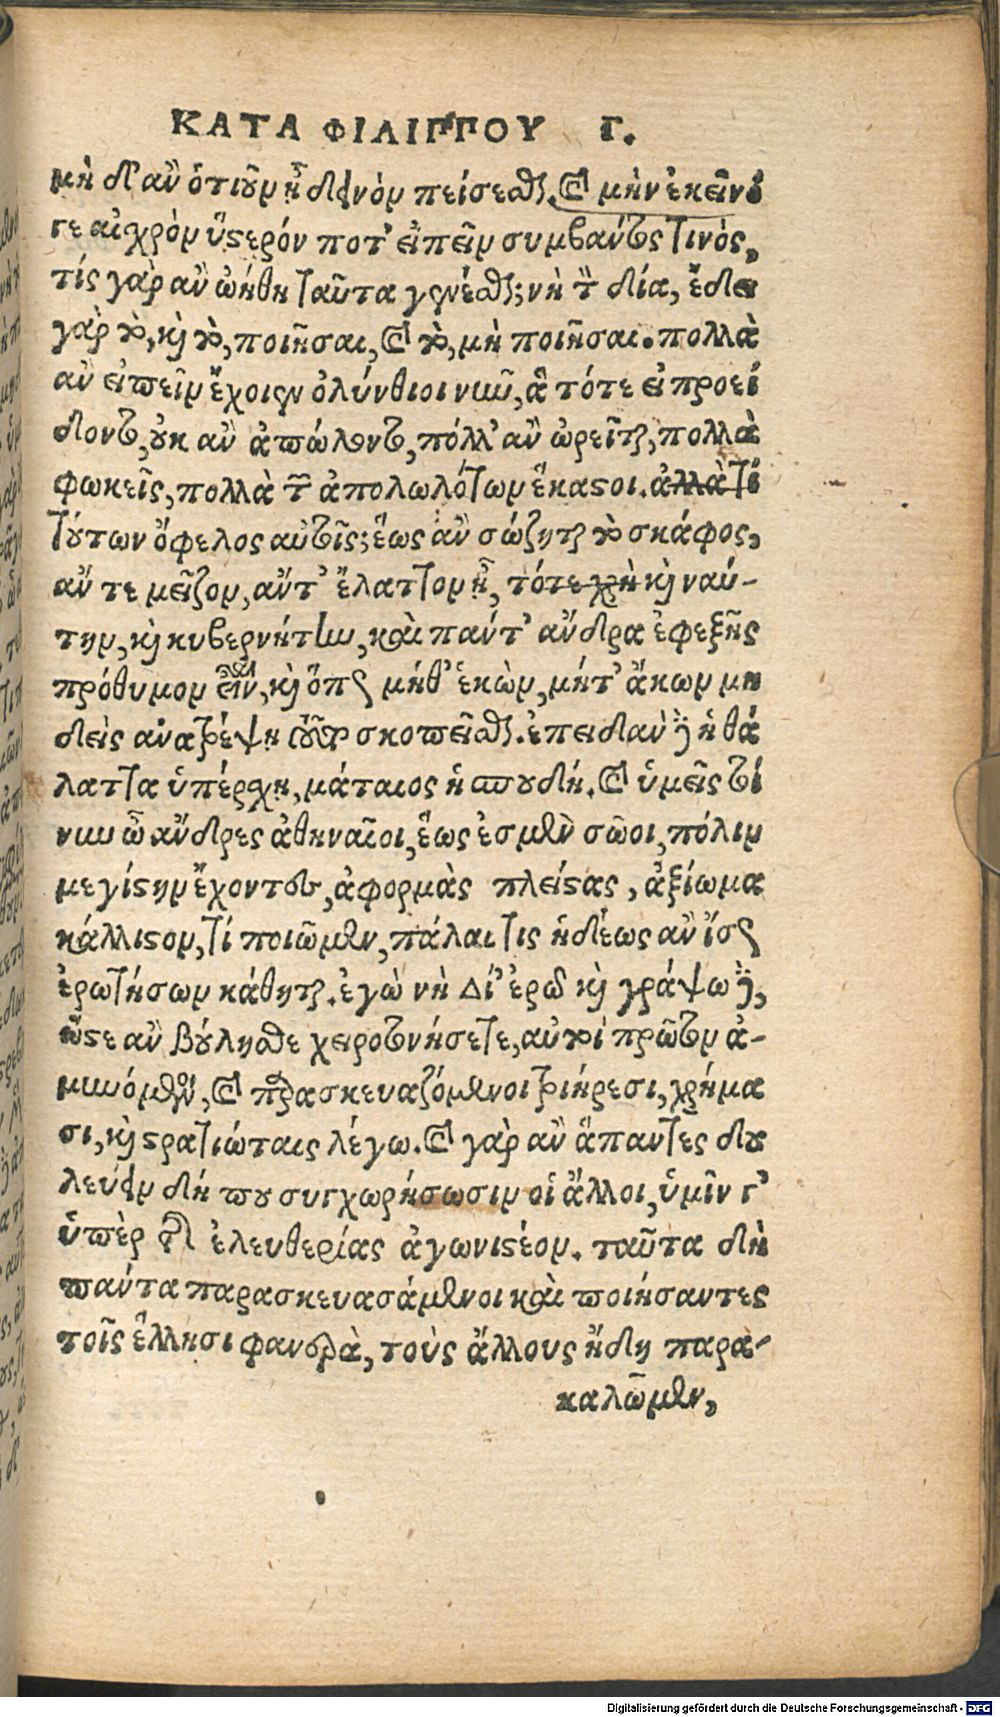 ΚΑΤΑ ΦΙΛΙΠΠΟΥ Γ.
μὴ δι' ἂν ὁτιοῦν ᾖ δεινὸν πείσεσθαι. καὶ μὴν ἐκεῖνό
γε αἰσχρὸν ὕστερόν ποτ' εἰπεῖν συμβάντος τινὸς,
τίς γὰρ ἂν ᾠήθη ταῦτα γενέσθαι; νὴ τὸν δία, ἔδει
γὰρ τὸ, καὶ τὸ, ποιῆσαι, καὶ τὸ, μὴ ποιῆσαι. πολλὰ
ἂν εἰπεῖν ἔχοιεν ὀλύνθιοι νῦν, ἃ τότε εἰ προεί
δοντο, οὐκ ἂν ἀπώλοντο, πόλλ' ἂν ὠρεῖται, πολλὰ
φωκεῖς, πολλὰ τῶν ἀπολωλότων ἕκαστοι. ἀλλὰ τί
τούτων ὄφελος αὐτοῖς; ἕως ἂν σώζηται τὸ σκάφος,
ἄν τε μεῖζον, ἄν τ' ἔλαττον ᾖ, τότε χρὴ καὶ ναύ-
την, καὶ κυβερνήτην, καὶ πάντ' ἄνδρα ἐφεξῆς
πρόθυμον εἶναι, καὶ ὅπως μήθ' ἑκὼν, μήτ' ἄκων μη
δεὶς ἀνατρέψῃ τοῦτο σκοπεῖσθαι. ἐπειδὰν δὲ ἡ θά
λαττα ὑπέρσχῃ, μάταιος ἡ σπουδή. καὶ ὑμεῖς τοί
νυν ὦ ἄνδρες ἀθηναῖοι, ἕως ἐσμὲν σῶοι, πόλιν
μεγίστην ἔχοντες, ἀφορμὰς πλείστας, ἀξίωμα
κάλλιστον, τί ποιῶμεν, πάλαι τις ἡδέως ἂν ἴσως
ἐρωτήσων κάθηται. ἐγὼ νὴ Δί' ἐρῶ καὶ γράψω δὲ,
ὥστε ἂν βούλησθε χειροτονήσετε, αὐτοὶ πρῶτον ἀ-
μυνόμενοι, καὶ παρασκευαζόμενοι τριήρεσι, χρήμα
σι, καὶ στρατιώταις λέγω. καὶ γὰρ ἂν ἅπαντες δου
λεύειν δή που συγχωρήσωσιν οἱ ἄλλοι, ὑμῖν γ'
ὑπὲρ τῆς ἐλευθερίας ἀγωνιστέον. ταῦτα δὴ
πάντα παρασκευασάμενοι καὶ ποιήσαντες
τοῖς ἕλλησι φανερὰ, τοὺς ἄλλους ἤδη παρα-
καλῶμεν,
Digitalisierung gefördert durch die Deutsche Forschungsgemeinschaft - DFG